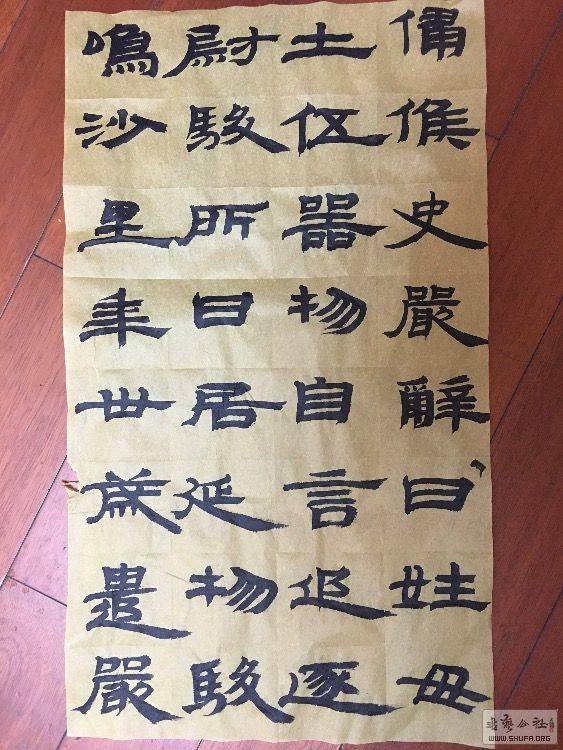 備候史嚴辭曰姓毋
士伍器物自言追逐
尉駿所曰居延物駿
鳴沙里年卅歲遣嚴
書藝公社
WWW.SHUFA.ORG